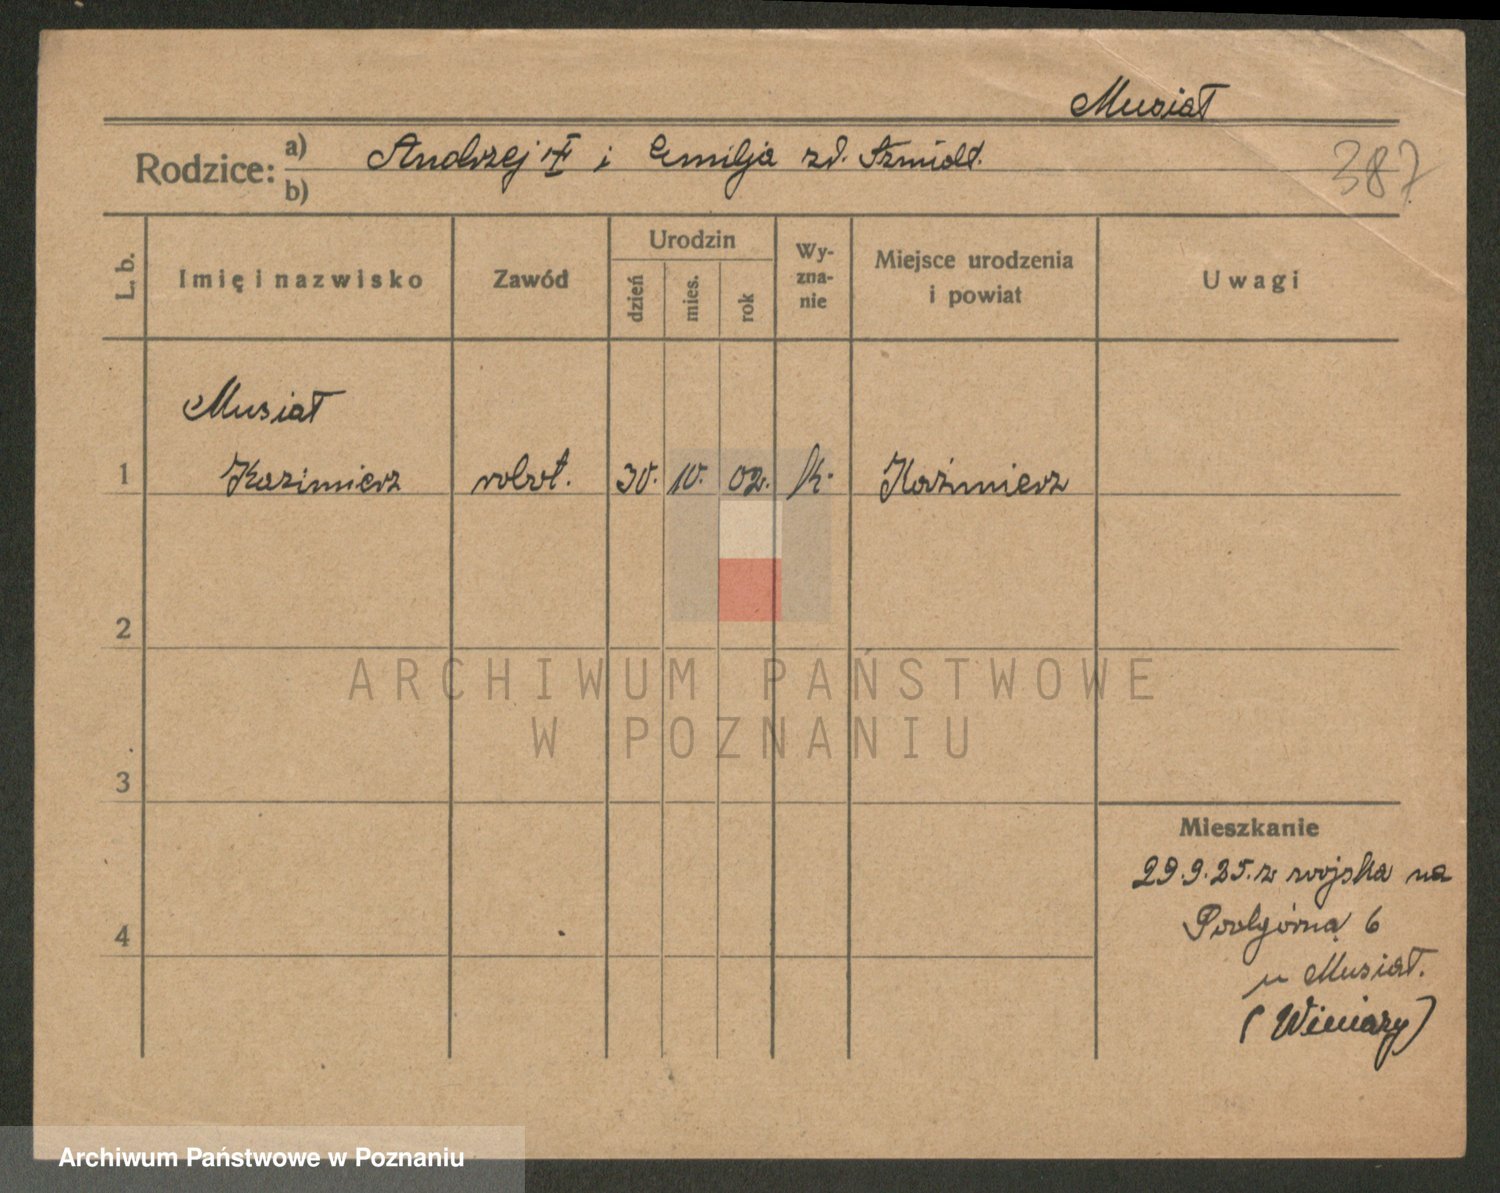 Musiał
Rodzice: a) Andrzej i Emilja zd. Szmidt.
b)
387
L. b. Imię i nazwisko Zawód Urodzin dzień mies. rok Wy-zna-nie Miejsce urodzenia i powiat Uwagi
Musiał
1 Kazimierz robot. 30. 10. 02. k. Kaźmierz
2
3
4
Mieszkanie
29.9.25. z wojska na
Podgórną 6
u Musiał.
(Winiary)
ARCHIWUM PAŃSTWOWE
W POZNANIU
Archiwum Państwowe w Poznaniu